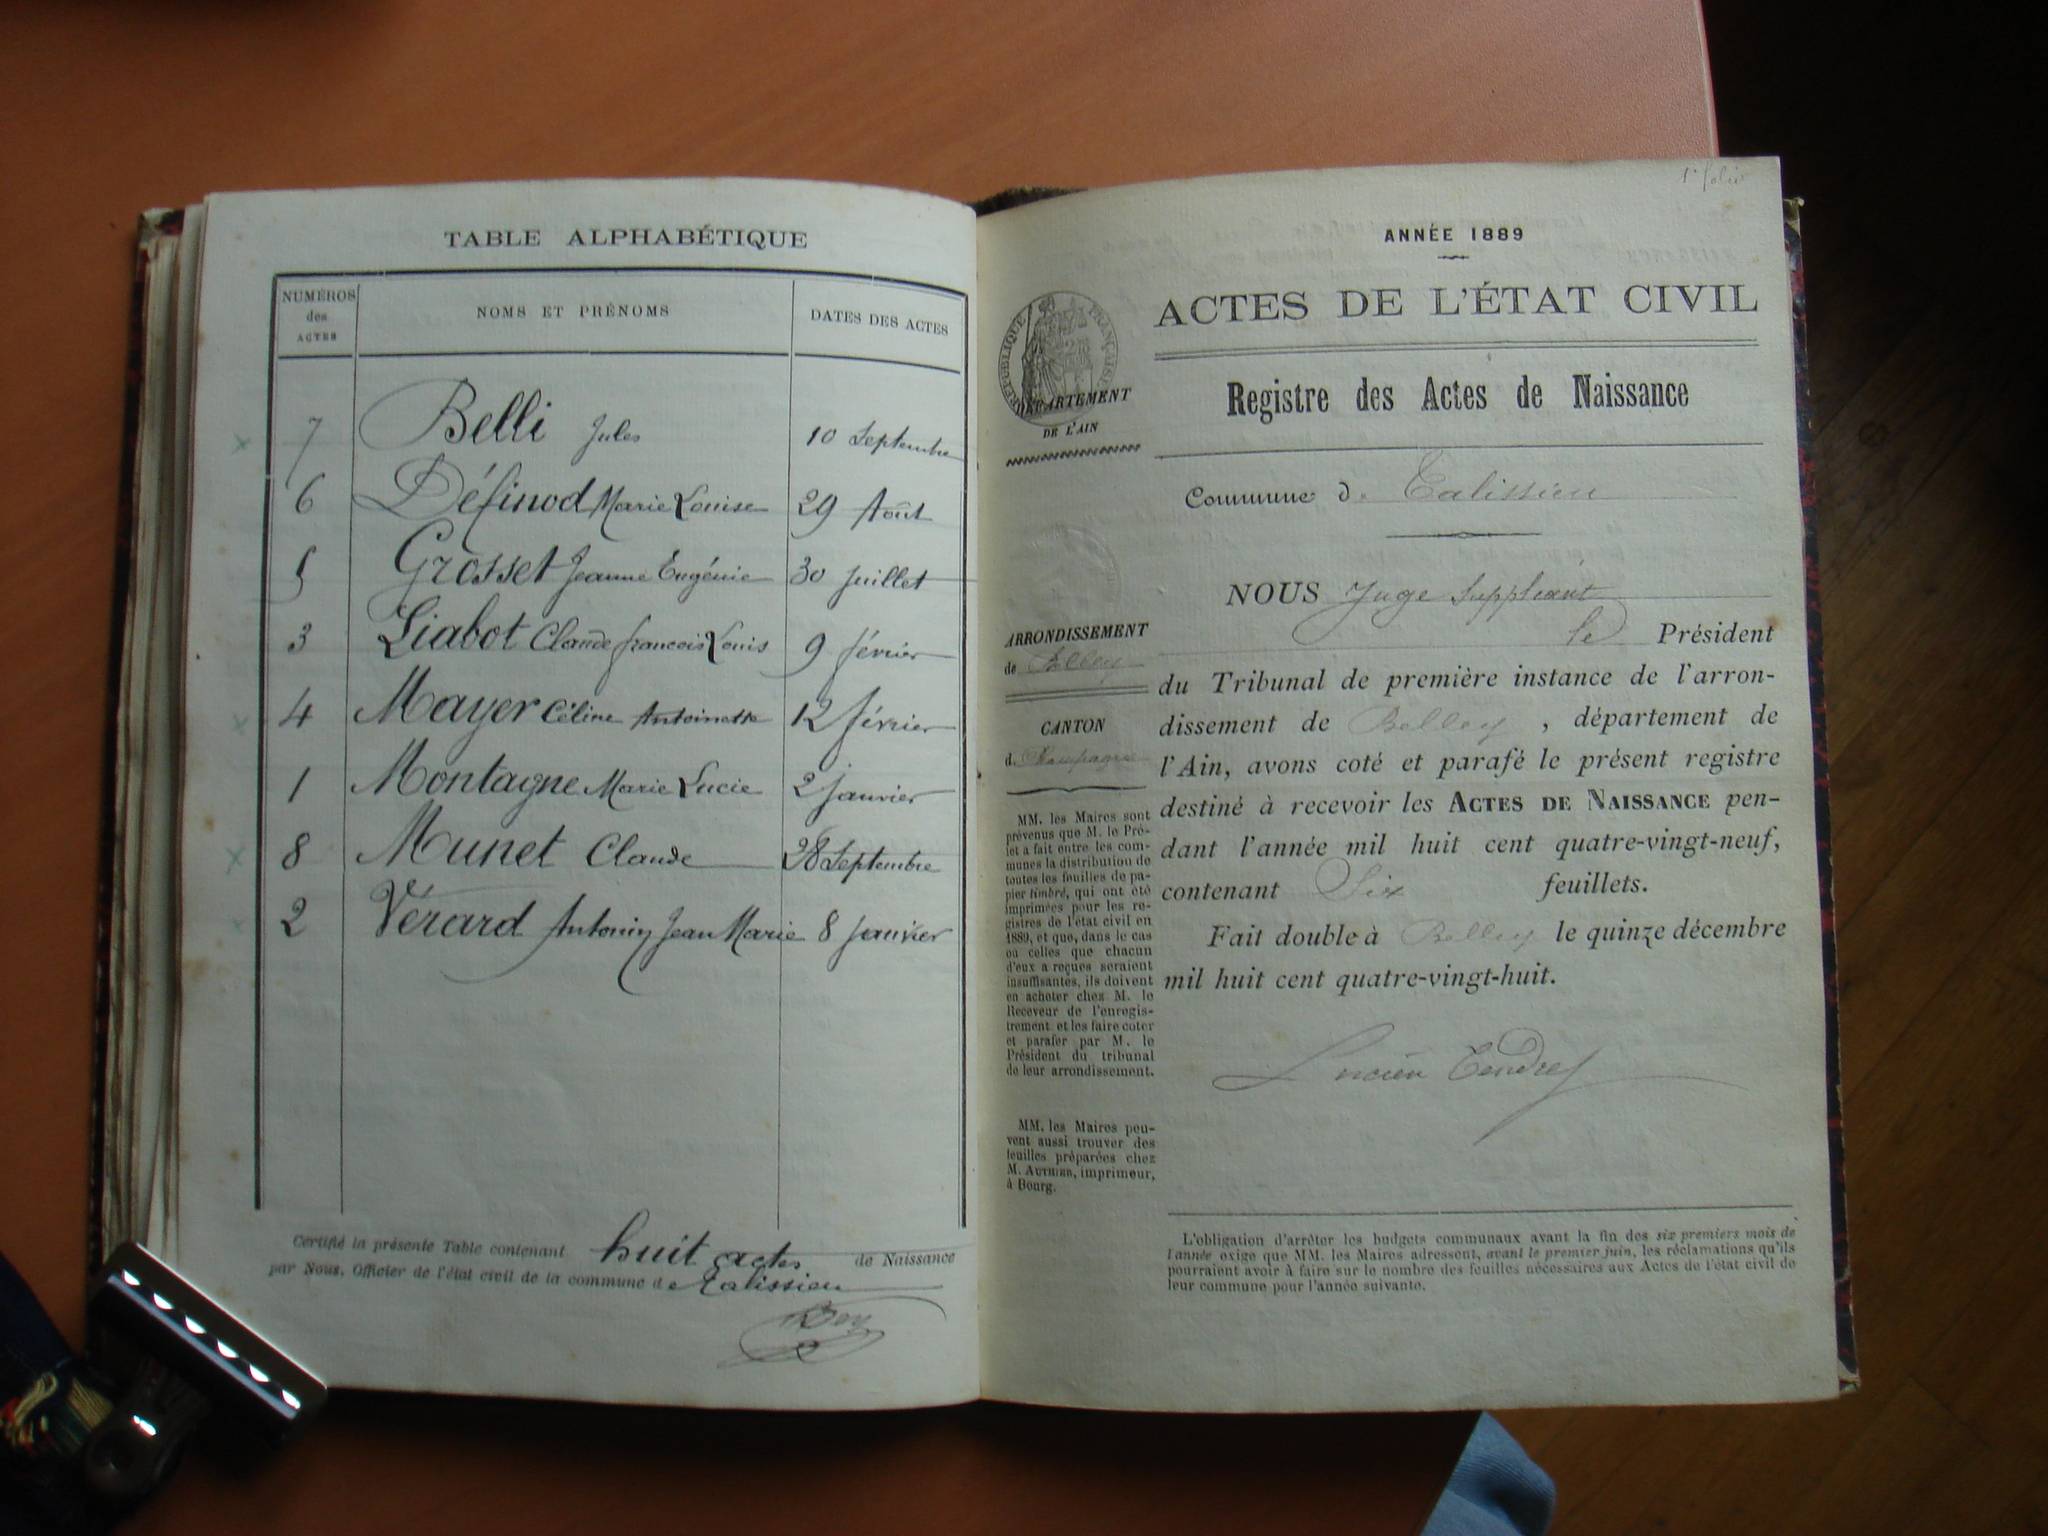 TABLE ALPHABÉTIQUE
NUMÉROS
des
ACTES
NOMS ET PRÉNOMS
DATES DES ACTES
7 Belli Jules 10 Septembre
6 Définod Marie Louise 29 Août
5 Grosset Jeanne Eugénie 30 Juillet
3 Liabot Claude francois Louis 9 février
4 Mayer Céline Antoinette 12 février
1 Montagne Marie Lucie 2 janvier
8 Munet Claude 28 Septembre
2 Vérard Antonin Jean Marie 8 Janvier
Certifié la présente Table contenant huit actes de Naissance
par Nous, Officier de l'état civil de la commune de Talissieu
1er folio
ANNÉE 1889
ACTES DE L'ÉTAT CIVIL
RÉPUBLIQUE FRANÇAISE
DÉPARTEMENT
DE L'AIN
Registre des Actes de Naissance
Commune de Talissieu
NOUS Juge Suppléant
le Président
du Tribunal de première instance de l'arron-
dissement de Belley, département de
l'Ain, avons coté et parafé le présent registre
destiné à recevoir les ACTES DE NAISSANCE pen-
dant l'année mil huit cent quatre-vingt-neuf,
contenant Six feuillets.
Fait double à Belley le quinze décembre
mil huit cent quatre-vingt-huit.
Lucien Tendret
ARRONDISSEMENT
de Belley
CANTON
d. Champagne
MM. les Maires sont
prévenus que M. le Pré-
fet a fait entre les com-
munes la distribution de
toutes les feuilles de pa-
pier timbré, qui ont été
imprimées pour les re-
gistres de l'état civil en
1889, et que, dans le cas
où celles que chacun
d'eux a reçues seraient
insuffisantes, ils doivent
en acheter chez M. le
Receveur de l'enregis-
trement et les faire coter
et parafer par M. le
Président du tribunal
de leur arrondissement.
MM. les Maires peu-
vent aussi trouver des
feuilles préparées chez
M. AUTHIER, imprimeur,
à Bourg.
L'obligation d'arrêter les budgets communaux avant la fin des six premiers mois de
l'année exige que MM. les Maires adressent, avant le premier juin, les réclamations qu'ils
pourraient avoir à faire sur le nombre des feuilles nécessaires aux Actes de l'état civil de
leur commune pour l'année suivante.